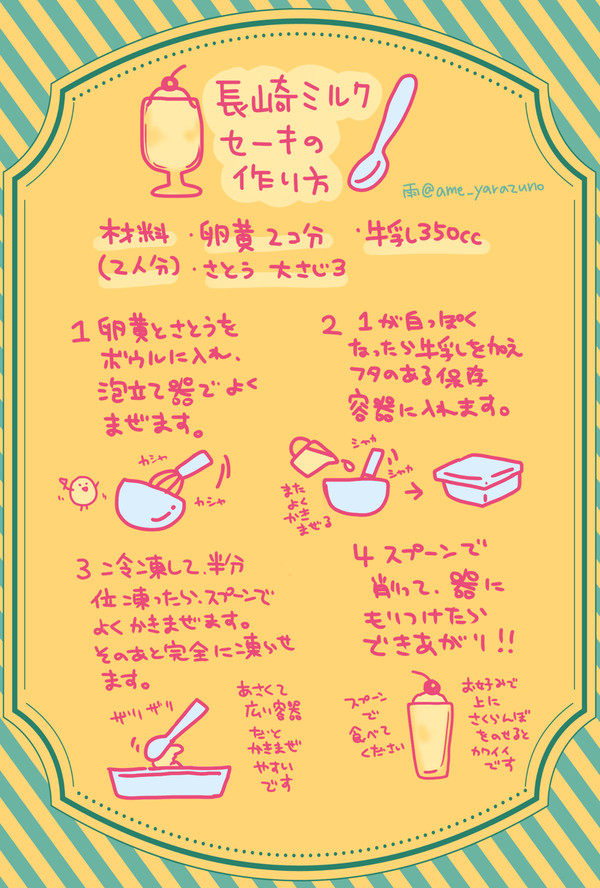 長崎ミルク
セーキの
作り方
雨@ame_yarazuno
材料 ・卵黄 2コ分 ・牛乳350cc
(2人分) ・さとう 大さじ3
1 卵黄とさとうを
ボウルに入れ、
泡立て器でよく
まぜます。
カシャ
カシャ
2 1が白っぽく
なったら牛乳を加え
フタのある保存
容器に入れます。
シャカ
シャカ
また
よく
かき
まぜる
3 冷凍して、半分
位凍ったら、スプーンで
よくかきまぜます。
そのあと完全に凍らせ
ます。
ザリザリ
あさくて
広い容器
だと
かきまぜ
やすい
です
4 スプーンで
削って、器に
もりつけたら
できあがり!!
スプーン
で
食べて
ください
お好みで
上に
さくらんぼ
をのせると
カワイイ
です